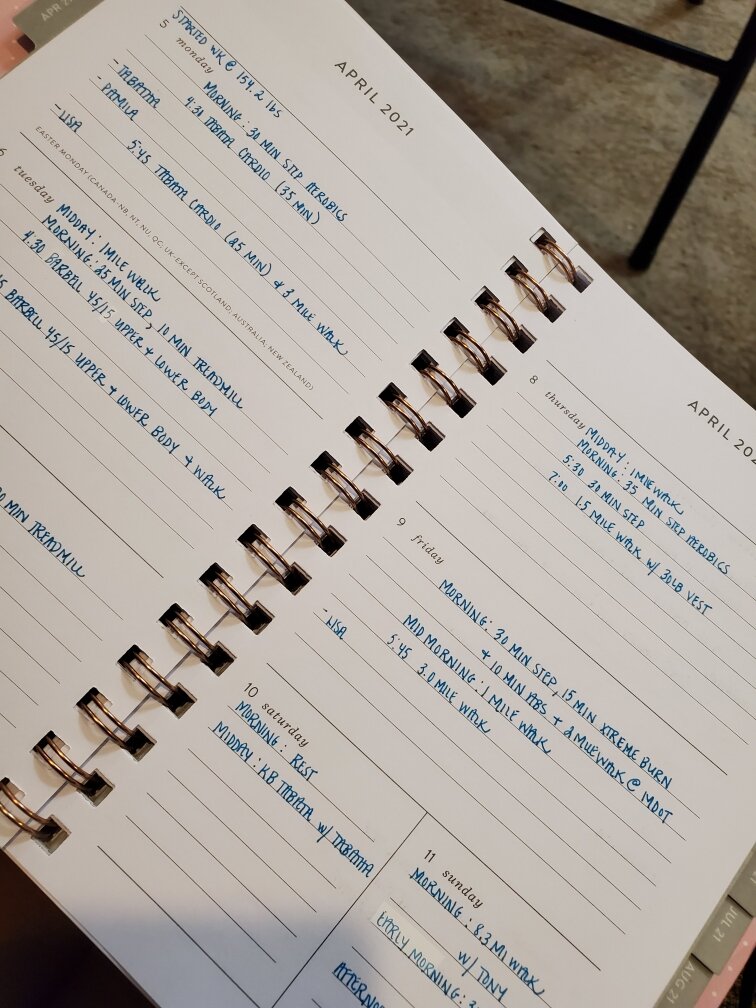 APR
APRIL 2021
STARTED WK @ 154.2 lbs
5 monday
MORNING: 30 MIN STEP AEROBICS
- TABATHA 4:30 TABATA CARDIO (35 MIN)
- PAMILA
- LISA 5:45 TABATA CARDIO (25 MIN) & 3 MILE WALK
EASTER MONDAY (CANADA: NB, NT, NU, QC, UK-EXCEPT SCOTLAND, AUSTRALIA, NEW ZEALAND)
6 tuesday
MIDDAY: 1 MILE WALK
MORNING: 25 MIN STEP, 10 MIN TREADMILL
4:30 BARBELL 45/15 UPPER + LOWER BODY
BARBELL 45/15 UPPER + LOWER BODY + WALK
MIN TREADMILL
APRIL
8 thursday
MIDDAY: 1 MILE WALK
MORNING: 35 MIN STEP AEROBICS
5:30 30 MIN STEP
7:00 1.5 MILE WALK w/ 30LB VEST
9 friday
MORNING: 30 MIN STEP, 15 MIN XTREME BURN
+ 10 MIN ABS + 2 MILE WALK @ MDOT
MID MORNING: 1 MILE WALK
- LISA 5:45 3.0 MILE WALK
10 saturday
MORNING: REST
MIDDAY: KB TABATA w/ TABATHA
11 sunday
MORNING: 8.3 MI WALK
w/ TONY
EARLY MORNING:
JUL 21
AUG